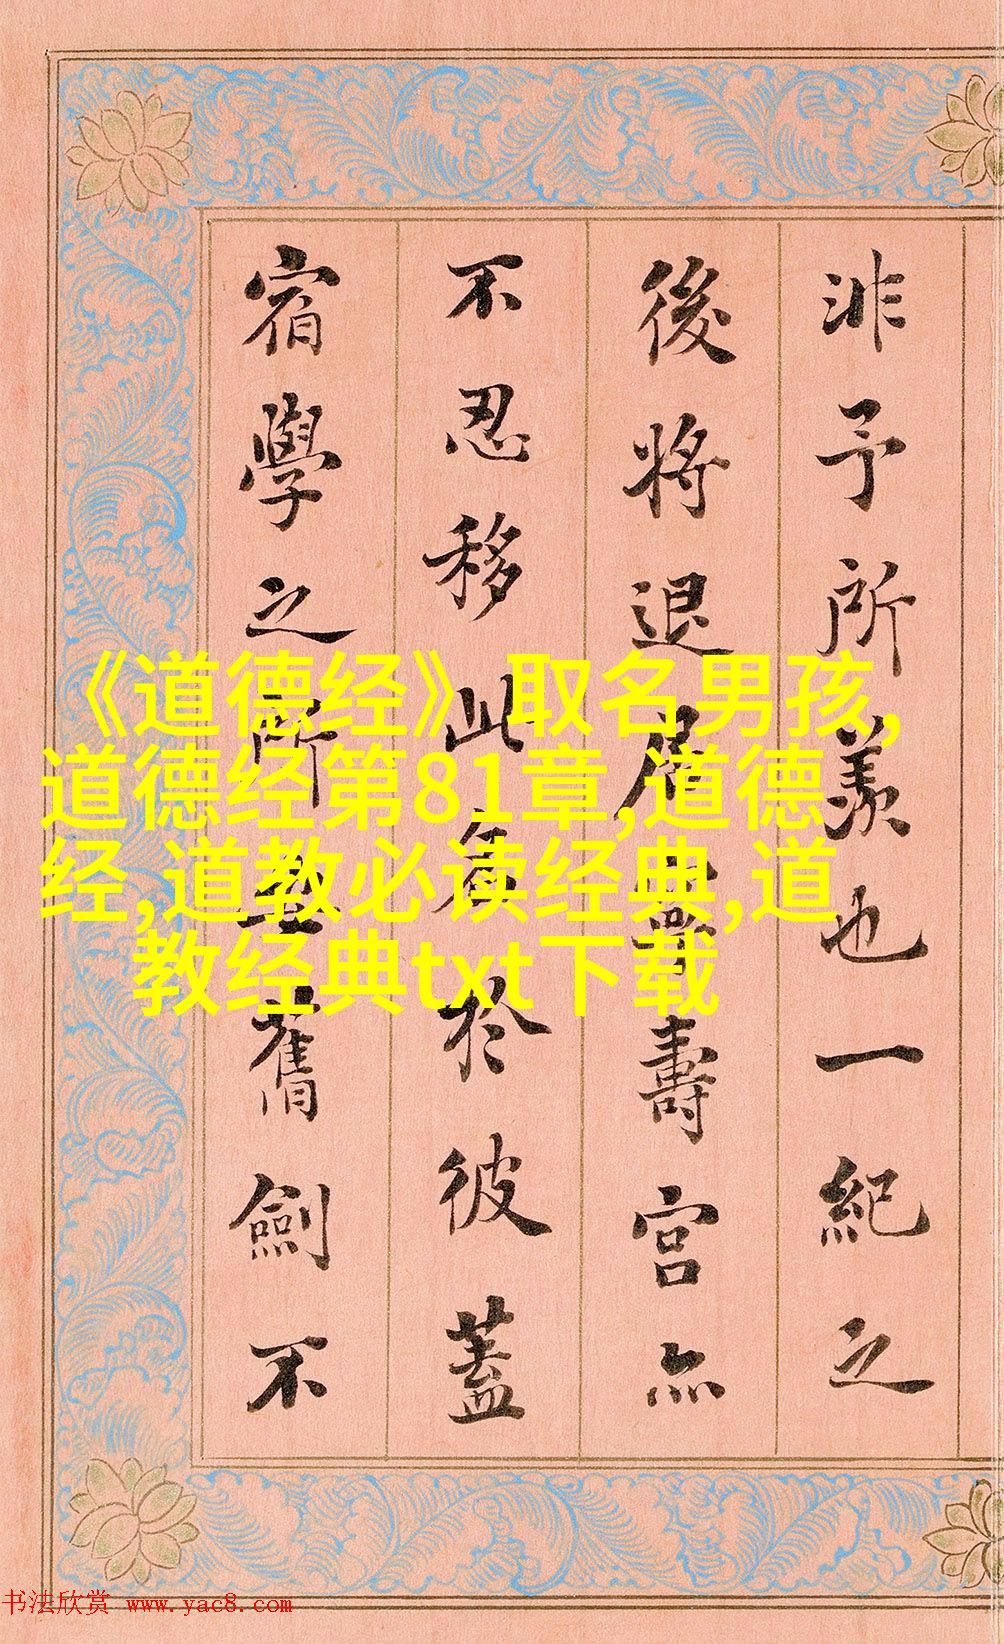 非予所羨也一紀之
後將退居寧壽宮亦
不忍移此於彼蓋
宿學之所舊劍不
《道德经》取名男孩,
道德经第81章,道德
经,道教必读经典,道
教经典txt下载
书法欣赏 www.yac8.com